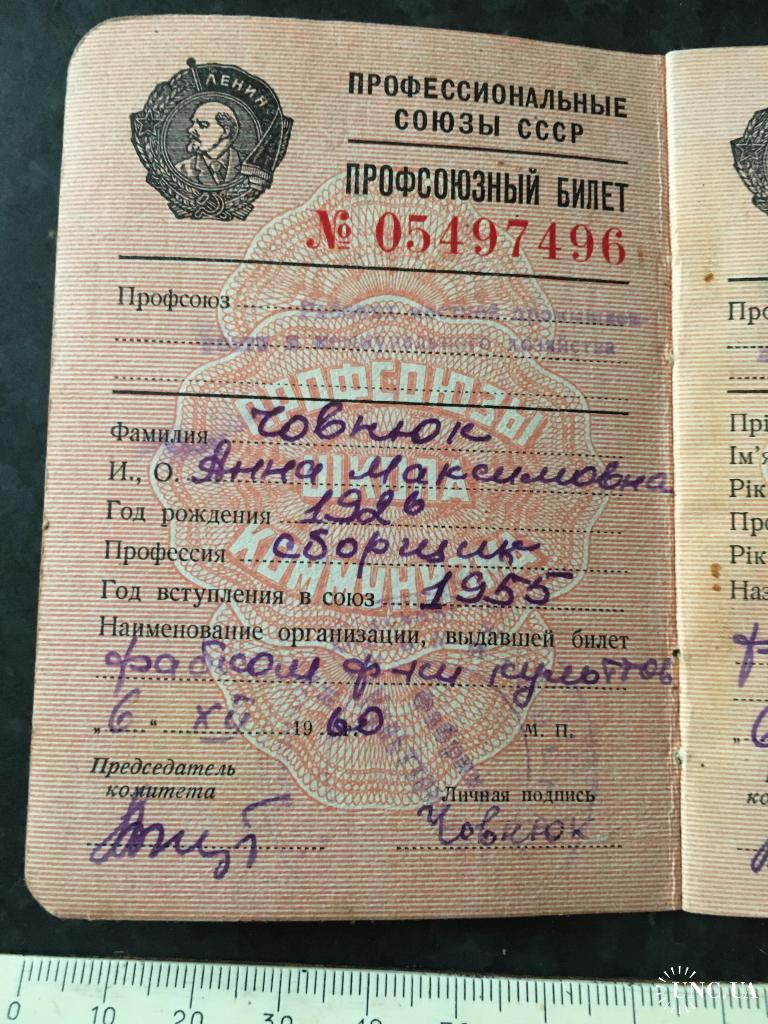 ЛЕНИН
ПРОФЕССИОНАЛЬНЫЕ
СОЮЗЫ СССР
ПРОФСОЮЗНЫЙ БИЛЕТ
№ 05497496
Профсоюз
и коммунального хозяйства
ПРОФСОЮЗЫ
ШКОЛА
КОММУНИЗМА
Фамилия Човнюк
И., О. Анна Максимовна
Год рождения 1926
Профессия сборщик
Год вступления в союз 1955
Наименование организации, выдавшей билет
фабком ф-ки культтов
„ 6 “ XII 1960 М. П.
Председатель
комитета
Личная подпись
Човнюк
Прі
Ім'я
Рік
Про
Рік
Наз
0 10 20 30 40
UNC.UA